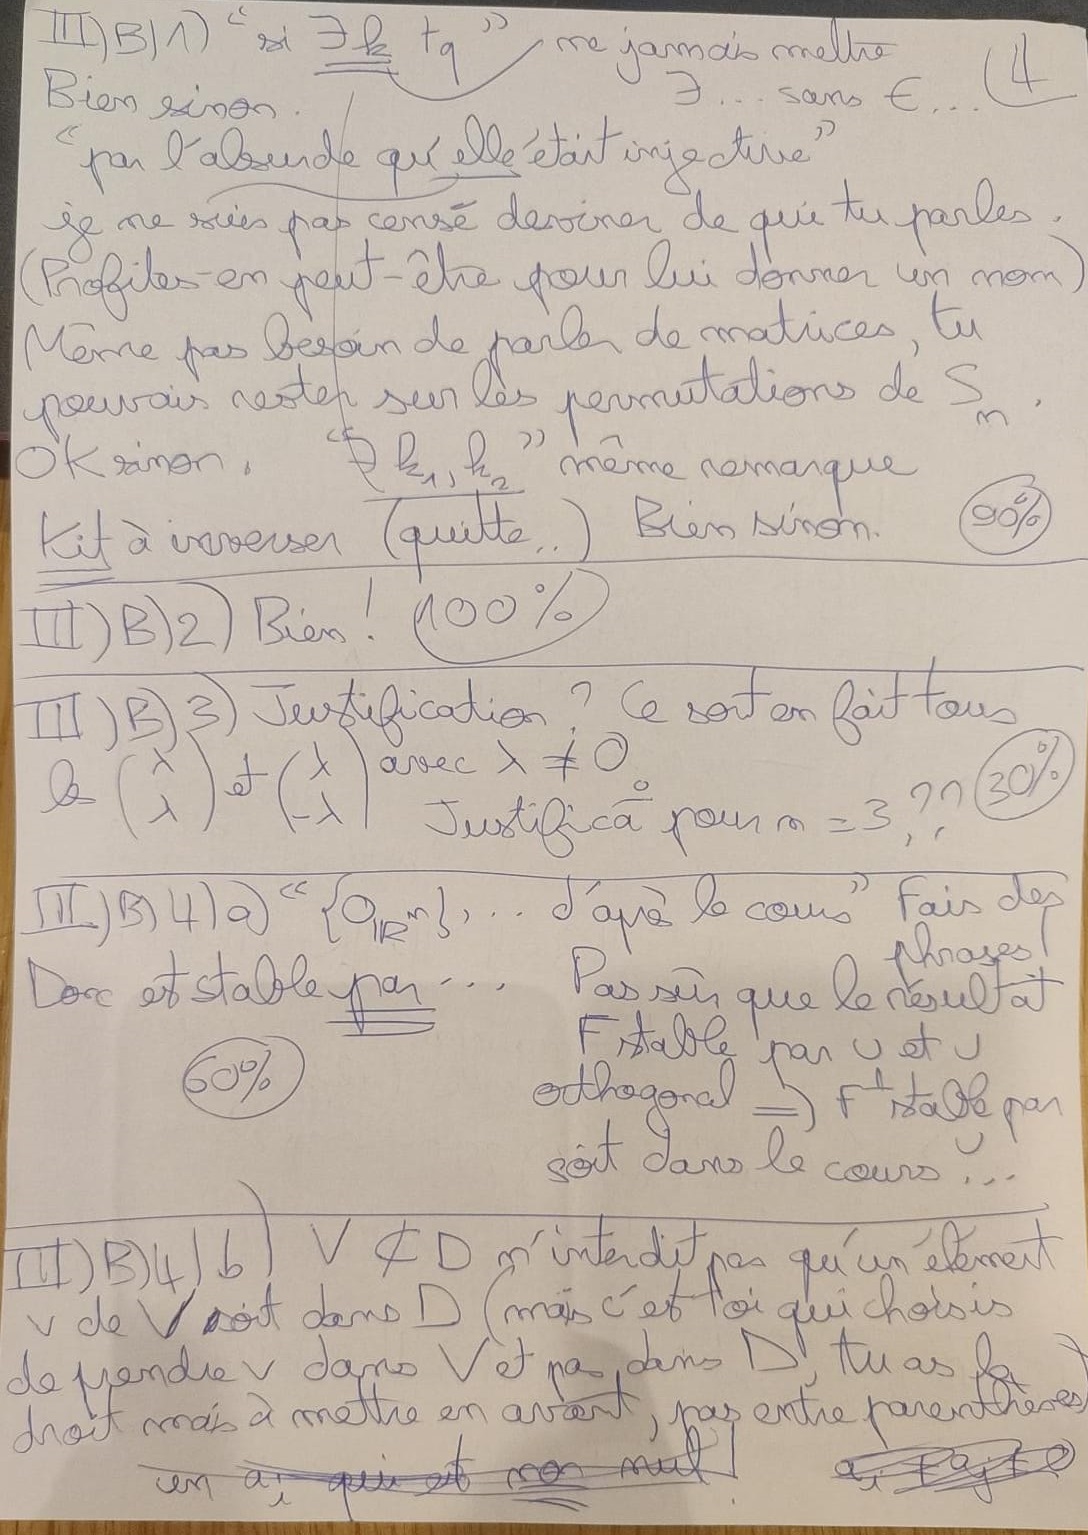 III) B) 1) “si ∃ k tq” ne jamais mettre
Bien sinon. ∃... sans ∈... (4
“par l'absurde qu'elle était injective”
je ne suis pas censé deviner de qui tu parles.
(Profites-en peut-être pour lui donner un nom)
Même pas besoin de parler de matrices, tu
pouvais rester sur les permutations de Sn.
OK sinon. “∃ k₁, k₂” même remarque
Kit à inverser (quitte..) Bien sinon. 90%
III) B) 2) Bien! 100%
III) B) 3) Justification? Ce sont en fait tous
les (λ λ) et (λ -λ) avec λ ≠ 0. 30%
Justificā° pour n = 3, ??
III) B) 4) a) “{0_{ℝ^n}}, ... d'après le cours” Fais des
phrases!
Donc est stable par ... Pas sûr que le résultat
F stable par u et u
60% orthogonal ⟹ F^⊥ stable par
u
soit dans le cours...
III) B) 4) b) V ⊄ D n'interdit pas qu'un élément
v de V soit dans D (mais c'est toi qui choisis
de prendre v dans V et pas dans D, tu as le
droit mais à mettre en avant, pas entre parenthèses)
un a_i qui est non nul!